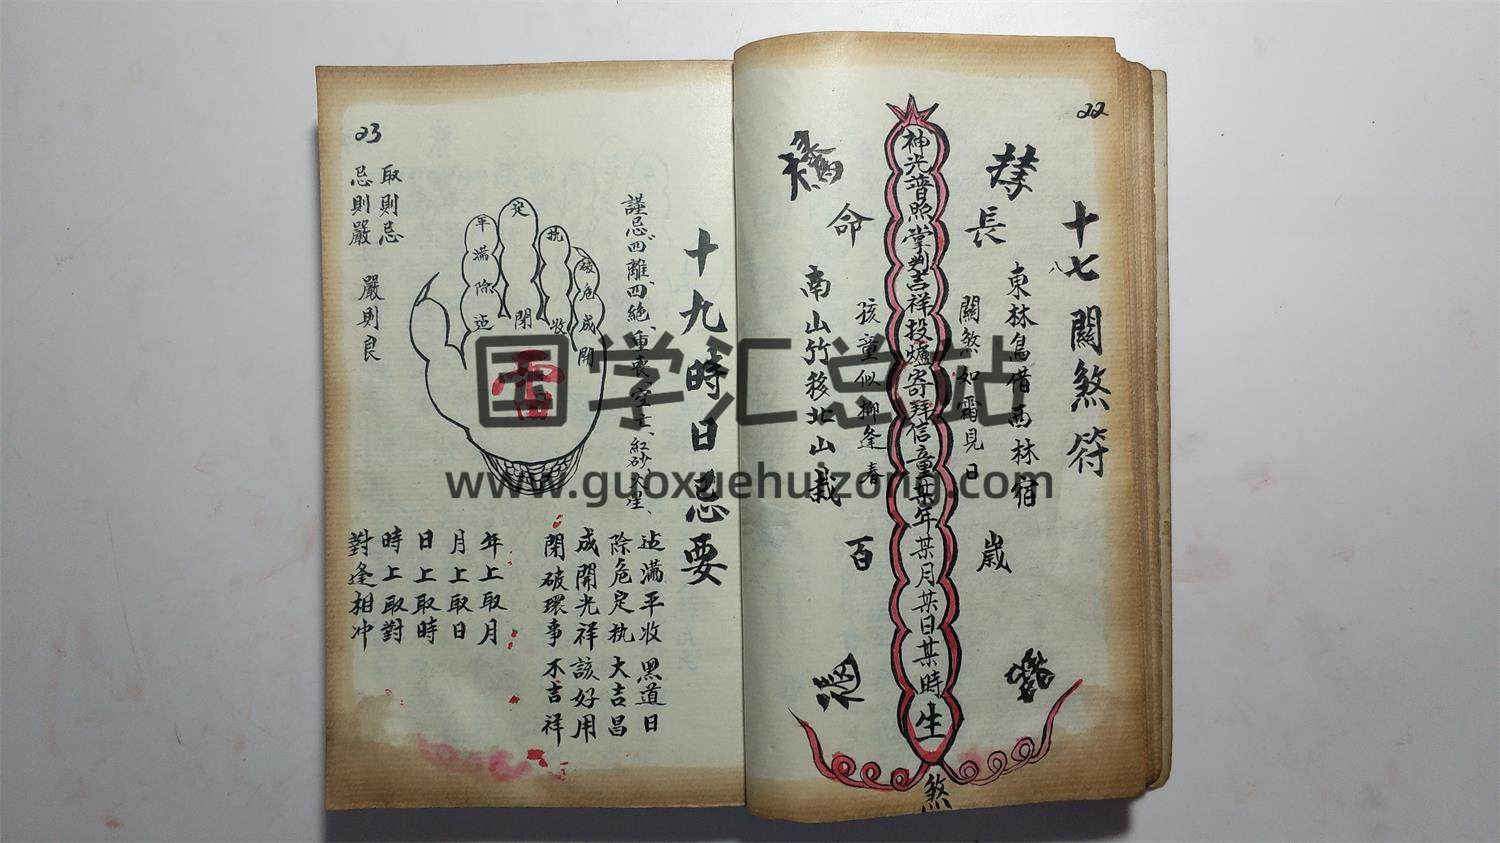 22
十七關煞符
八
東林鳥借西林宿
長
歲
關煞如霜見日
神光普照掌判吉祥投爐寄拜信童某年某月某日某時生
煞
孩童似柳逢春
命
百
南山竹移北山栽
23
十九時日忌要
謹忌四離、四絕、重喪、空亡、紅砂、火星、
建滿平收黑道日
除危定执大吉昌
成開光祥該好用
閉破環事不吉祥
破危成開
执收
定閉
平滿除建
雷
年上取月
月上取日
日上取時
時上取對
對逢相冲
取則忌
忌則嚴
嚴則良
国学汇总站
www.guoxuehuizong.com